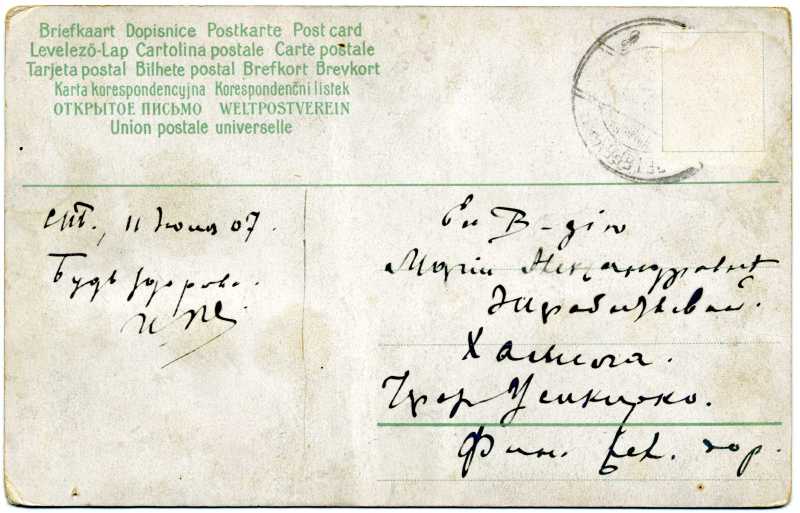 Briefkaart Dopisnice Postkarte Post card
Levelező-Lap Cartolina postale Carte postale
Tarjeta postal Bilhete postal Brefkort Brevkort
Karta korespondencyjna Korespondenční listek
ОТКРЫТОЕ ПИСЬМО WELTPOSTVEREIN
Union postale universelle
СПб., 11 07.
Будь здорова.
Ея В-дію
Маріи Александровне
Халила.
Чрез Усикирко.
Фин. жел. дор.